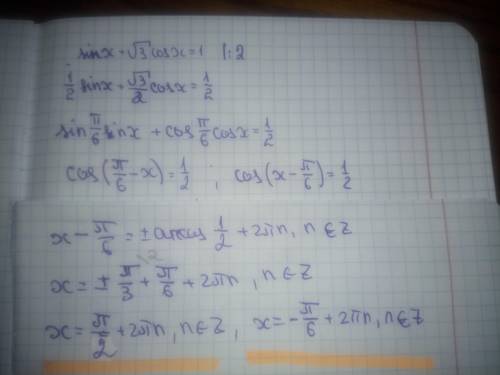 sinx + √3 cosx = 1 |:2
1/2 sinx + √3/2 cosx = 1/2
sin π/6 sinx + cos π/6 cosx = 1/2
cos(π/6 - x) = 1/2 ; cos(x - π/6) = 1/2
x - π/6 = ± arccos 1/2 + 2πn, n ∈ Z
x = ± π/3 + π/6 + 2πn, n ∈ Z
x = π/2 + 2πn, n ∈ Z, x = -π/6 + 2πn, n ∈ Z